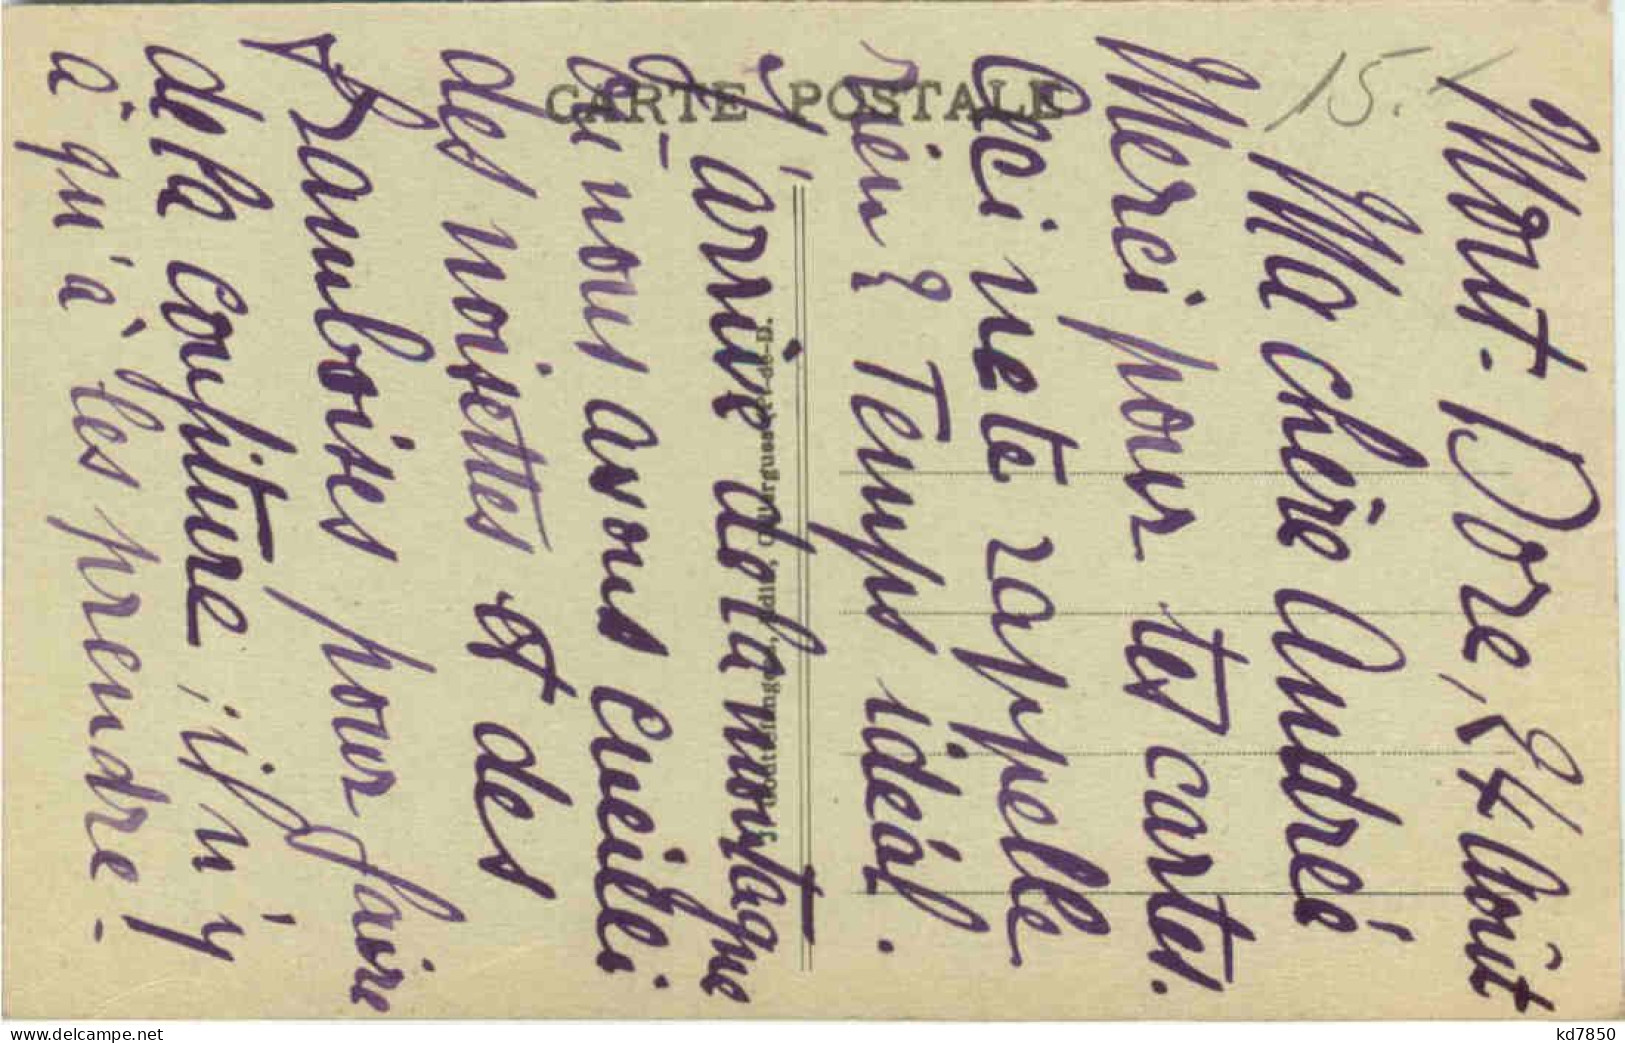 CARTE POSTALE
15.-
Mont-Dore, 24 Août
Ma chère Andrée
Merci pour tes cartes.
Ceci ne te rappelle
rien ? Temps idéal.
J'arrive de la montagne
où nous avons cueilli
des noisettes et des
framboises pour faire
de la confiture ; il n'y
a qu'à les prendre -
kd7850